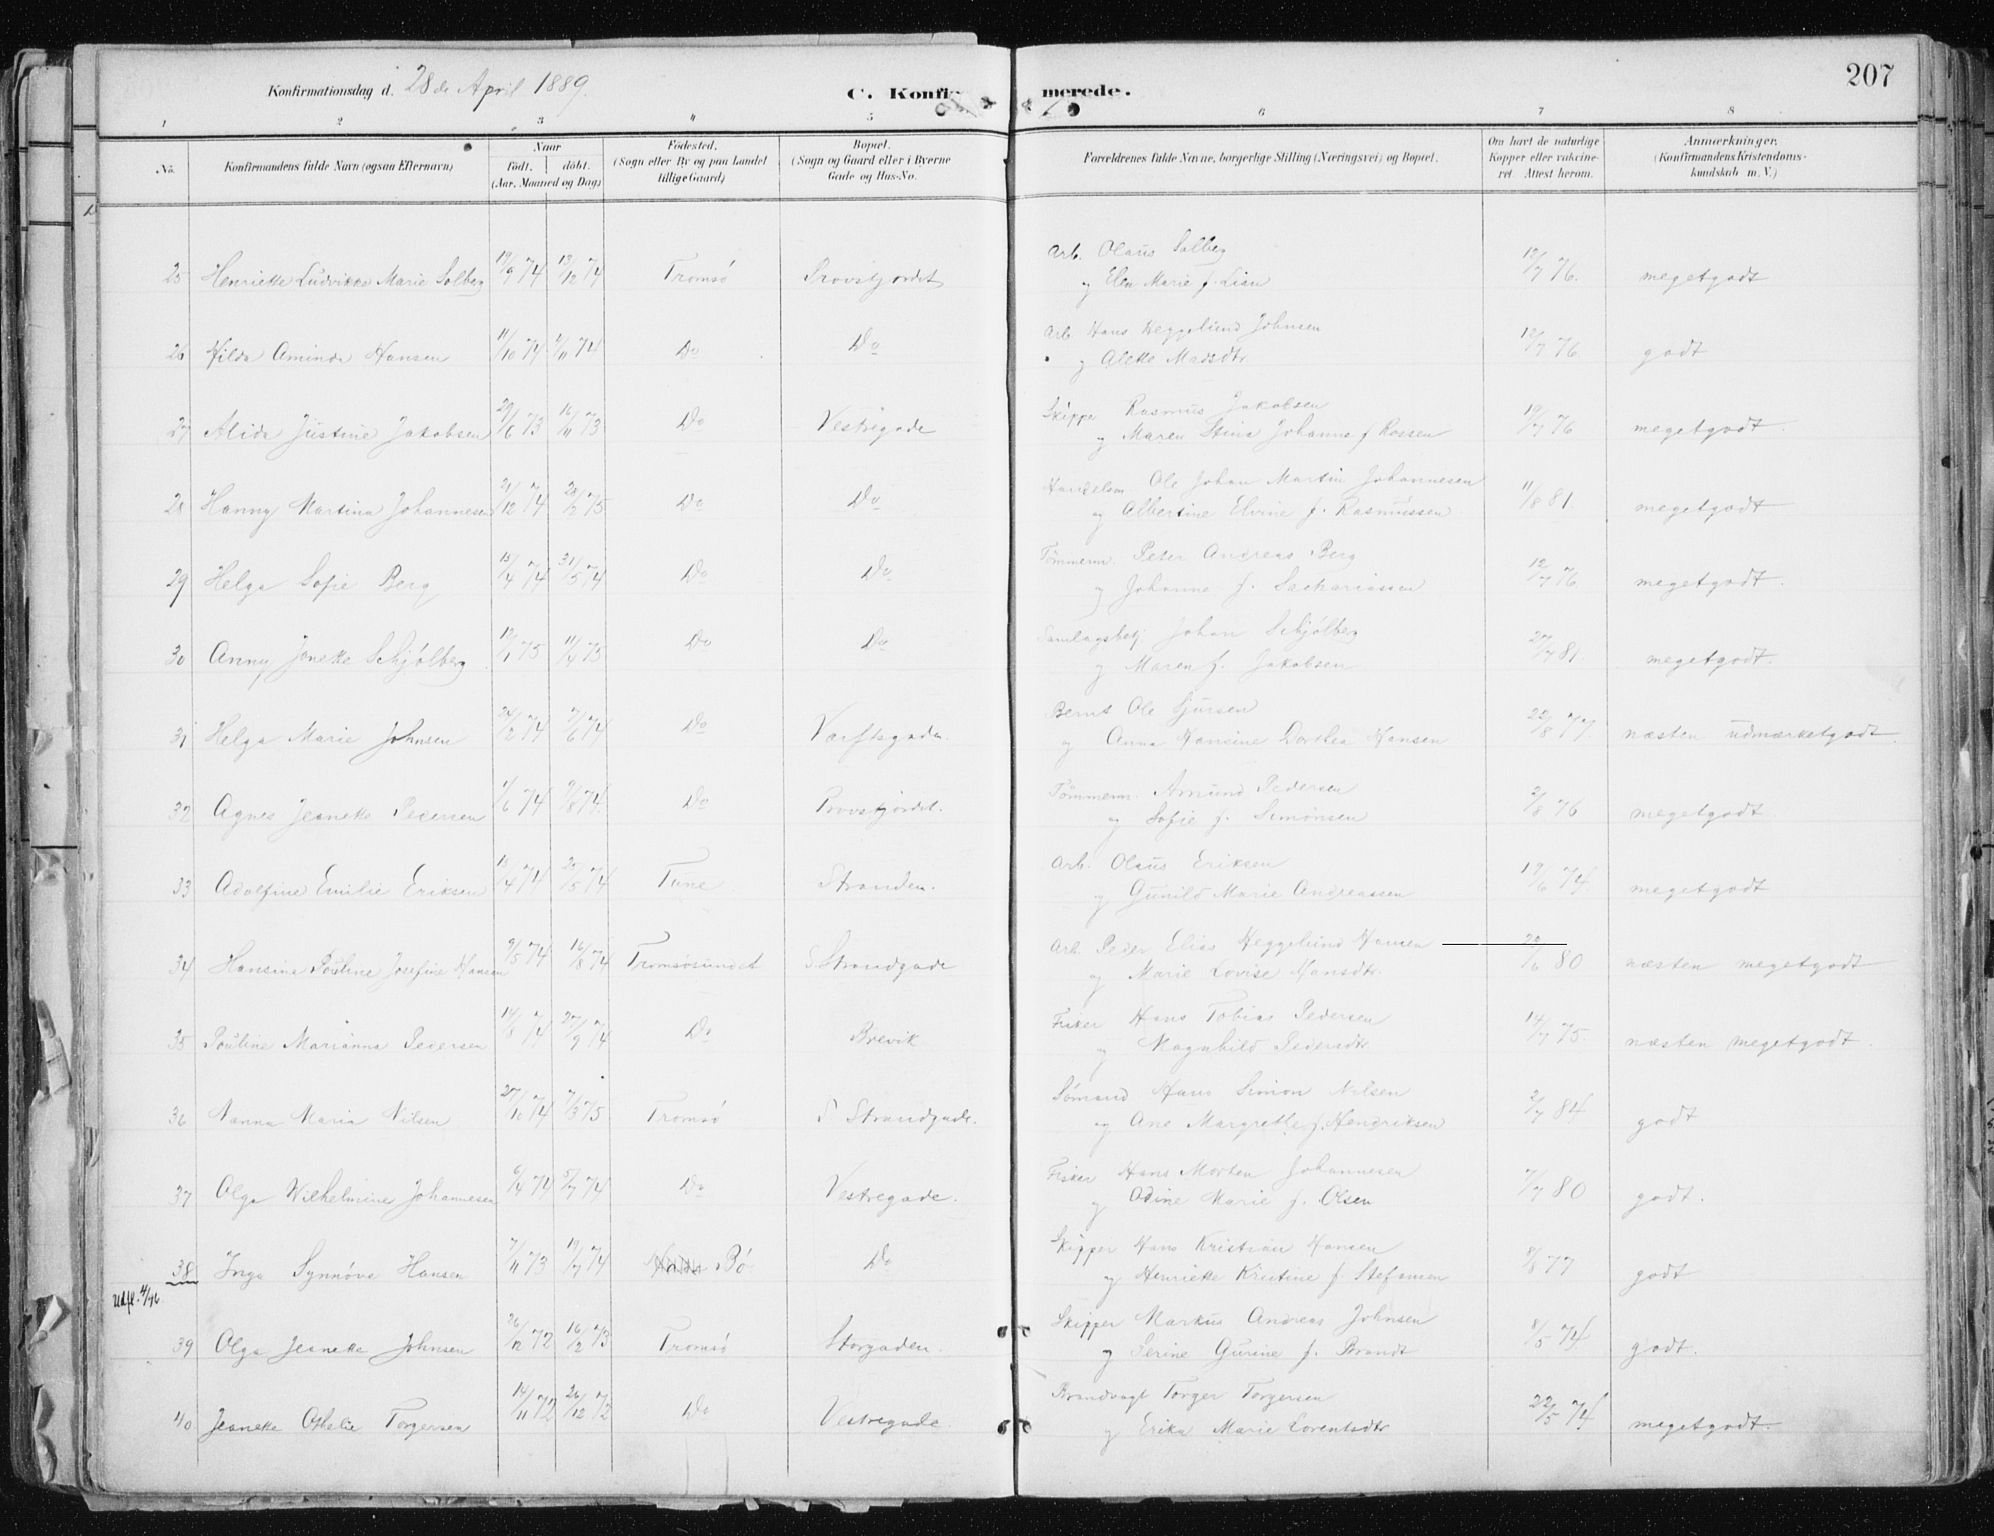 Konfirmationsdag d. 28de April 1889.
C. Konfirmerede.
207
1 2 3 4 5 6 7 8
No.
Konfirmandens fulde Navn (ogsaa Efternavn)
Naar
Födt. döbt.
(Aar. Maaned og Dag)
Födested.
(Sogn eller By og paa Landet
tillige Gaard)
Bopæl.
(Sogn og Gaard eller i Byerne
Gade og Hus-No.
Forældrenes fulde Navne, borgerlige Stilling (Næringsvei) og Bopæl.
Om havt de naturlige
Kopper eller vakcine-
ret. Attest herom.
Anmærkninger.
(Konfirmandens Kristendoms-
kundskab m. V.)
25 Henriette Ludvikke Marie Solberg 19/9 74 13/12 74 Tromsö Provstjordet Arb. Olaus Solberg 12/7 76. megetgodt
og Elen Marie f. Lian
26 Hilda Aminda Hansen 11/10 74 /11 74 Do Do Arb. Hans Heggelund Johnsen 12/7 76 godt
og Alette Madsdtr.
27 Alida Justine Jakobsen 29/6 73 16/11 73 Do Vestregade Skipper Rasmus Jakobsen 19/7 76 megetgodt.
og Maren Stina Johanne f. Rossen
28 Hanny Martina Johannesen 21/12 74 28/2 75 Do Do Handelsm. Ole Johan Martin Johannesen 11/8 81. megetgodt
og Albertine Elvine f. Rasmussen
29 Helga Sofie Berg 15/4 74 31/5 74 Do Do Tömmerm. Peter Andreas Berg 12/7 76 megetgodt.
og Johanne f. Sachariassen
30 Anny Janette Schjölberg 12/1 75 11/4 75 Do Do Samlagsbetj. Johan Schjölberg 27/7 81. megetgodt.
og Maren f. Jakobsen
31 Helga Marie Johnsen 24/2 74 7/6 74 Do Værftsgaden. Bernt Ole Sjursen 22/8 77. næsten udmærketgodt.
og Anna Hansine Dorthea Hansen
32 Agnes Jeanette Pedersen 1/6 74 9/8 74. Do Provstjordet. Tömmerm. Amund Pedersen 2/8 76 megetgodt.
og Sofie f. Simonsen
33 Adolfine Emilie Eriksen 13/4 74 25/5 74 Tune Stranden. Arb. Olaus Eriksen 19/6 74. megetgodt
og Gunild Marie Andreassen
34 Hansine Pauline Josefine Hansen 9/5 74 16/8 74 Tromsösundet S. Strandgade Arb. Peder Elias Heggelund Hansen 20/6 80 næsten megetgodt
og Marie Lovise Hansdtr.
35 Pauline Marianna Pedersen 14/8 74 27/9 74 Do Brevik Fisker Hans Tobias Pedersen 14/7 75. næsten megetgodt.
og Magnhild Pedersdtr.
36 Nanna Maria Nilsen 27/10 74 7/3 75 Tromsö S Strandgade. Sömand Hans Simon Nilsen 2/7 84 godt
og Ane Margrethe f. Hendriksen
37 Olga Wilhelmine Johannesen 6/4 74 5/7 74 Do Vestregade. Fisker Hans Morten Johannesen 7/7 80 godt.
og Odine Marie f. Olsen
38 Inga Synnöve Hansen 7/11 73 19/7 74 Bö Do Skipper Hans Kristian Hansen 8/8 77 godt
og Henriette Kristine f. Stefansen
Udfl. 4/96
39 Olga Jeanette Johnsen 26/12 72 16/2 73 Tromsö Storgaden. Skipper Markus Andreas Johnsen 8/5 74. godt.
og Serine Gurine f. Brandt
40 Jeanette Othelie Torgersen 14/11 72 26/12 72 Do Vestregade. Brandvagt Torger Torgersen 22/5 74 megetgodt.
og Erika Marie Lorentsdtr